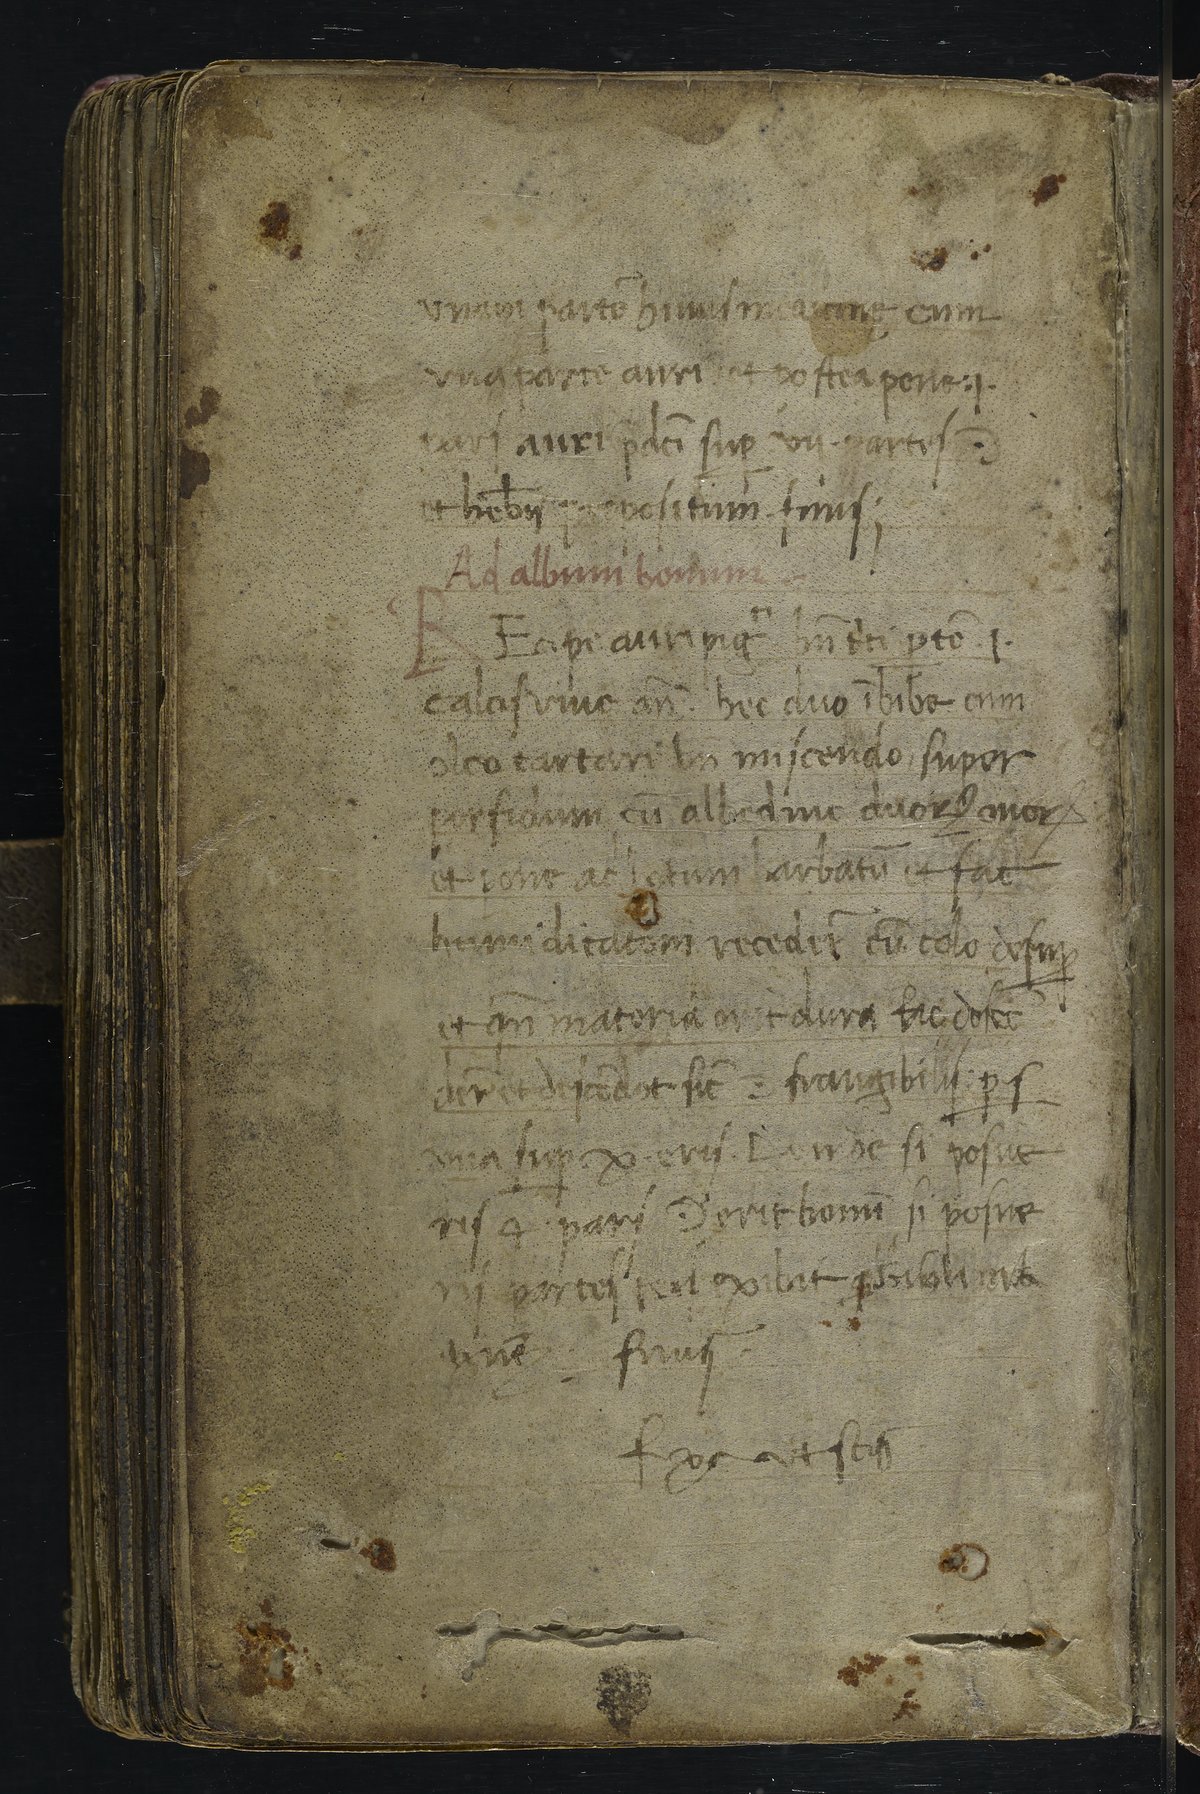 vnam parte̅ huius medicine cum
vna parte auri et postea pone .j.
parj auri p̅dc̅i sup̱ vij partes ☽
et heb̅ij propositum finis;
Ad album bonum
Recipe auripig̅ b̅n t̅ti p̱te̅ .j.
calcis viue an̅. hec duo i̅bibe cum
oleo tartari b̅n miscendo super
porfidum cu̅ albedine duoꝝ ouoꝝ
et pone ad lutum barbatu̅ et fac
humiditatem receder̅ cu̅ celo desup̱
et qn̅ materia erit dura fac
et descendet sic frangibilis p̱s
vna sup̱ x eris. Deinde si posue
ris 4 parj ☽ erit bonu̅ si posue
iij partes exibit
finis